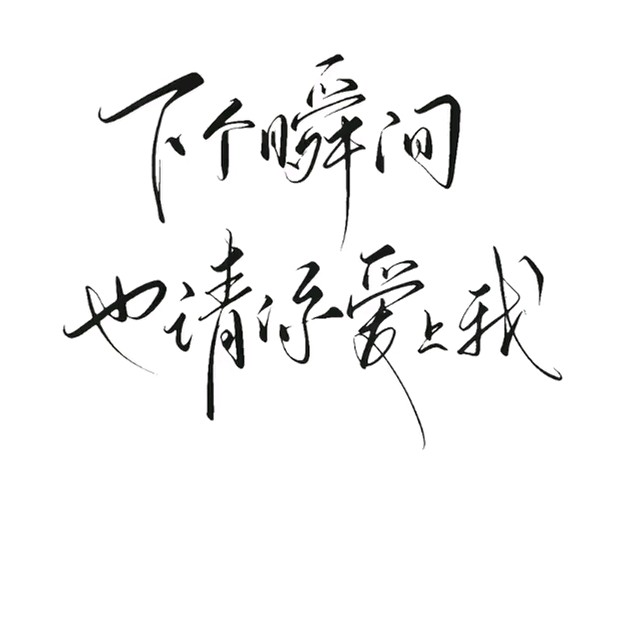 下个瞬间
也请你爱上我